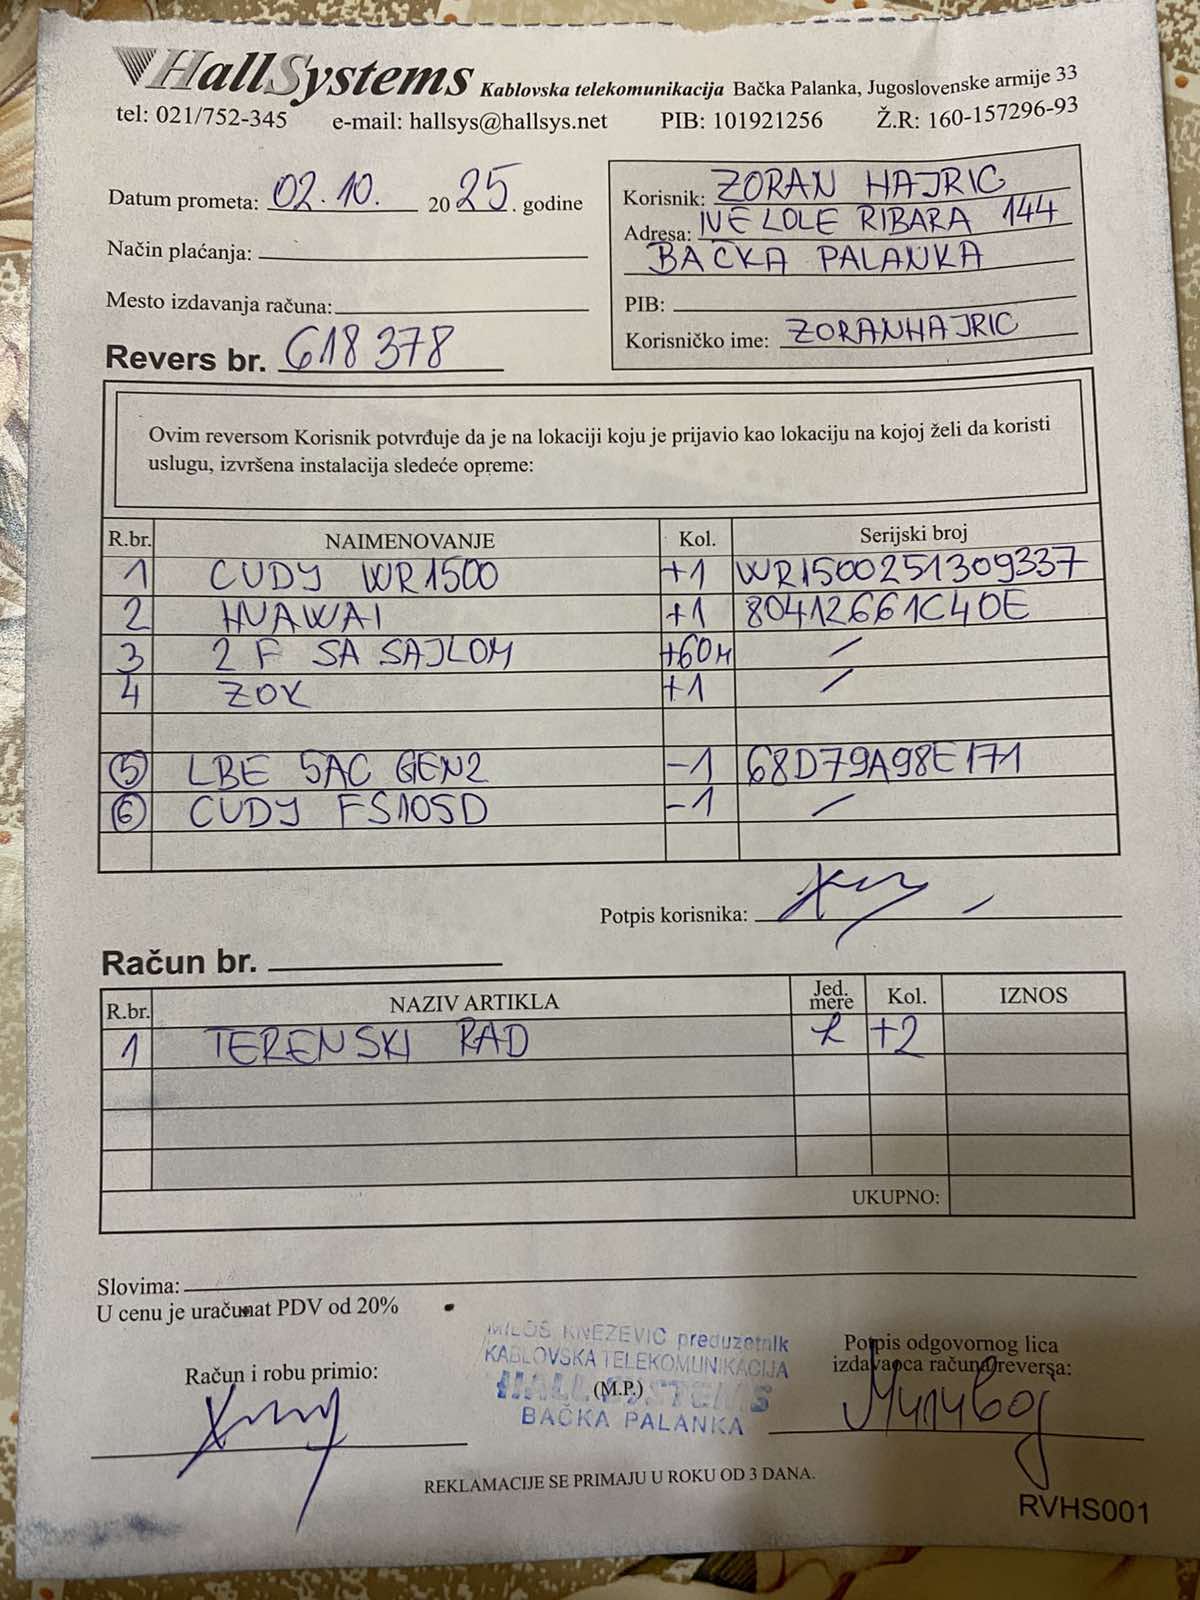 HallSystems Kablovska telekomunikacija Bačka Palanka, Jugoslovenske armije 33
tel: 021/752-345 e-mail: hallsys@hallsys.net PIB: 101921256 Ž.R: 160-157296-93
Datum prometa: 02.10. 2025. godine
Način plaćanja:
Mesto izdavanja računa:
Revers br. 618378
Korisnik: ZORAN HAJRIC
Adresa: IVE LOLE RIBARA 144
BAČKA PALANKA
PIB:
Korisničko ime: ZORANHAJRIC
Ovim reversom Korisnik potvrđuje da je na lokaciji koju je prijavio kao lokaciju na kojoj želi da koristi
uslugu, izvršena instalacija sledeće opreme:
R.br. NAIMENOVANJE Kol. Serijski broj
1 CUDY WR1500 +1 WR1500251309337
2 HUAWAI +1 80412661C40E
3 2 F SA SAJLOM +60M /
4 ZOK +1 /
5 LBE 5AC GEN2 -1 68D79A98E171
6 CUDY FS105D -1 /
Potpis korisnika:
Račun br.
R.br. NAZIV ARTIKLA Jed. mere Kol. IZNOS
1 TERENSKI RAD +2
UKUPNO:
Slovima:
U cenu je uračunat PDV od 20%
Račun i robu primio:
MILOŠ KNEŽEVIĆ preduzetnik
KABLOVSKA TELEKOMUNIKACIJA
HALL SYSTEMS
(M.P.)
BAČKA PALANKA
Potpis odgovornog lica
izdavaoca računa/reversa:
REKLAMACIJE SE PRIMAJU U ROKU OD 3 DANA.
RVHS001